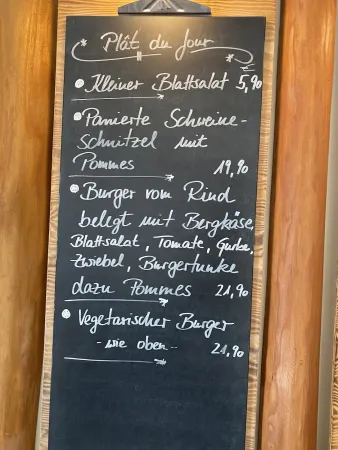 Plât du Jour
Kleiner Blattsalat 5,90
Panierte Schweine-
schnitzel mit
Pommes 19,90
Burger vom Rind
belegt mit Bergkäse,
Blattsalat, Tomate, Gurke,
Zwiebel, Burgertunke
dazu Pommes 21,90
Vegetarischer Burger
- wie oben - 21,90